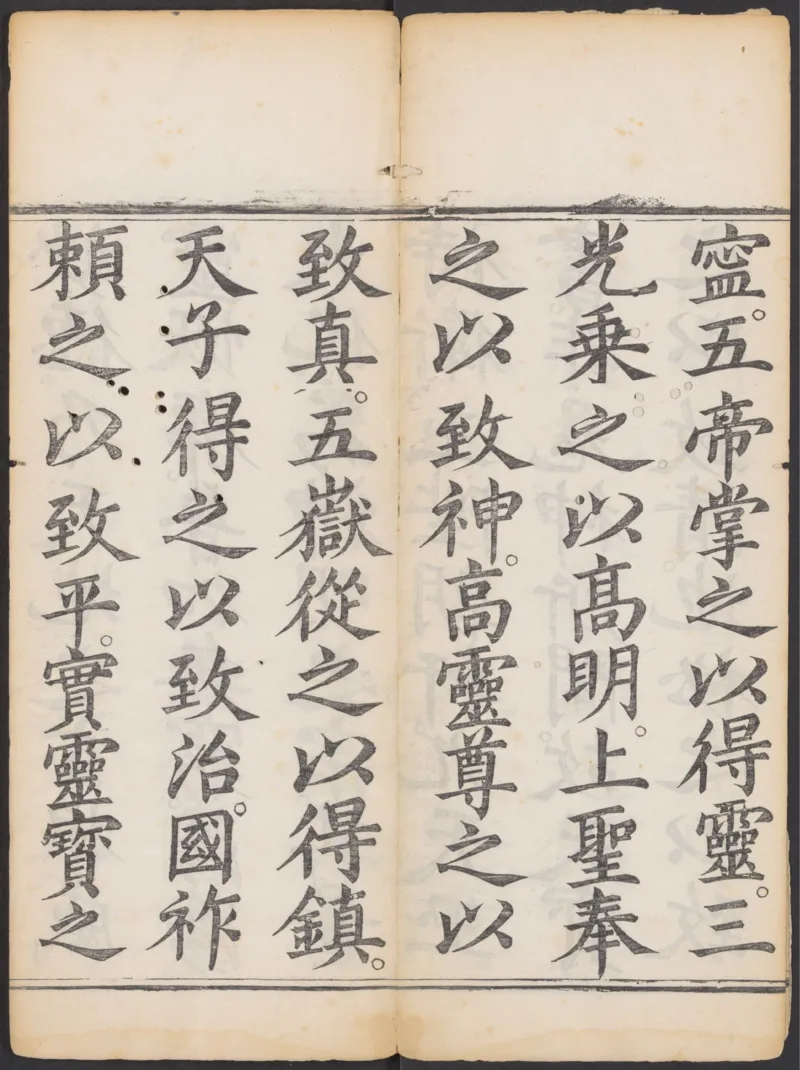 寍。五帝掌之以得靈。三
光乗之以髙明。上聖奉
之以致神。高靈尊之以
致真。五嶽從之以得鎮。
天子得之以致治。國祚
頼之以致平。實靈寶之